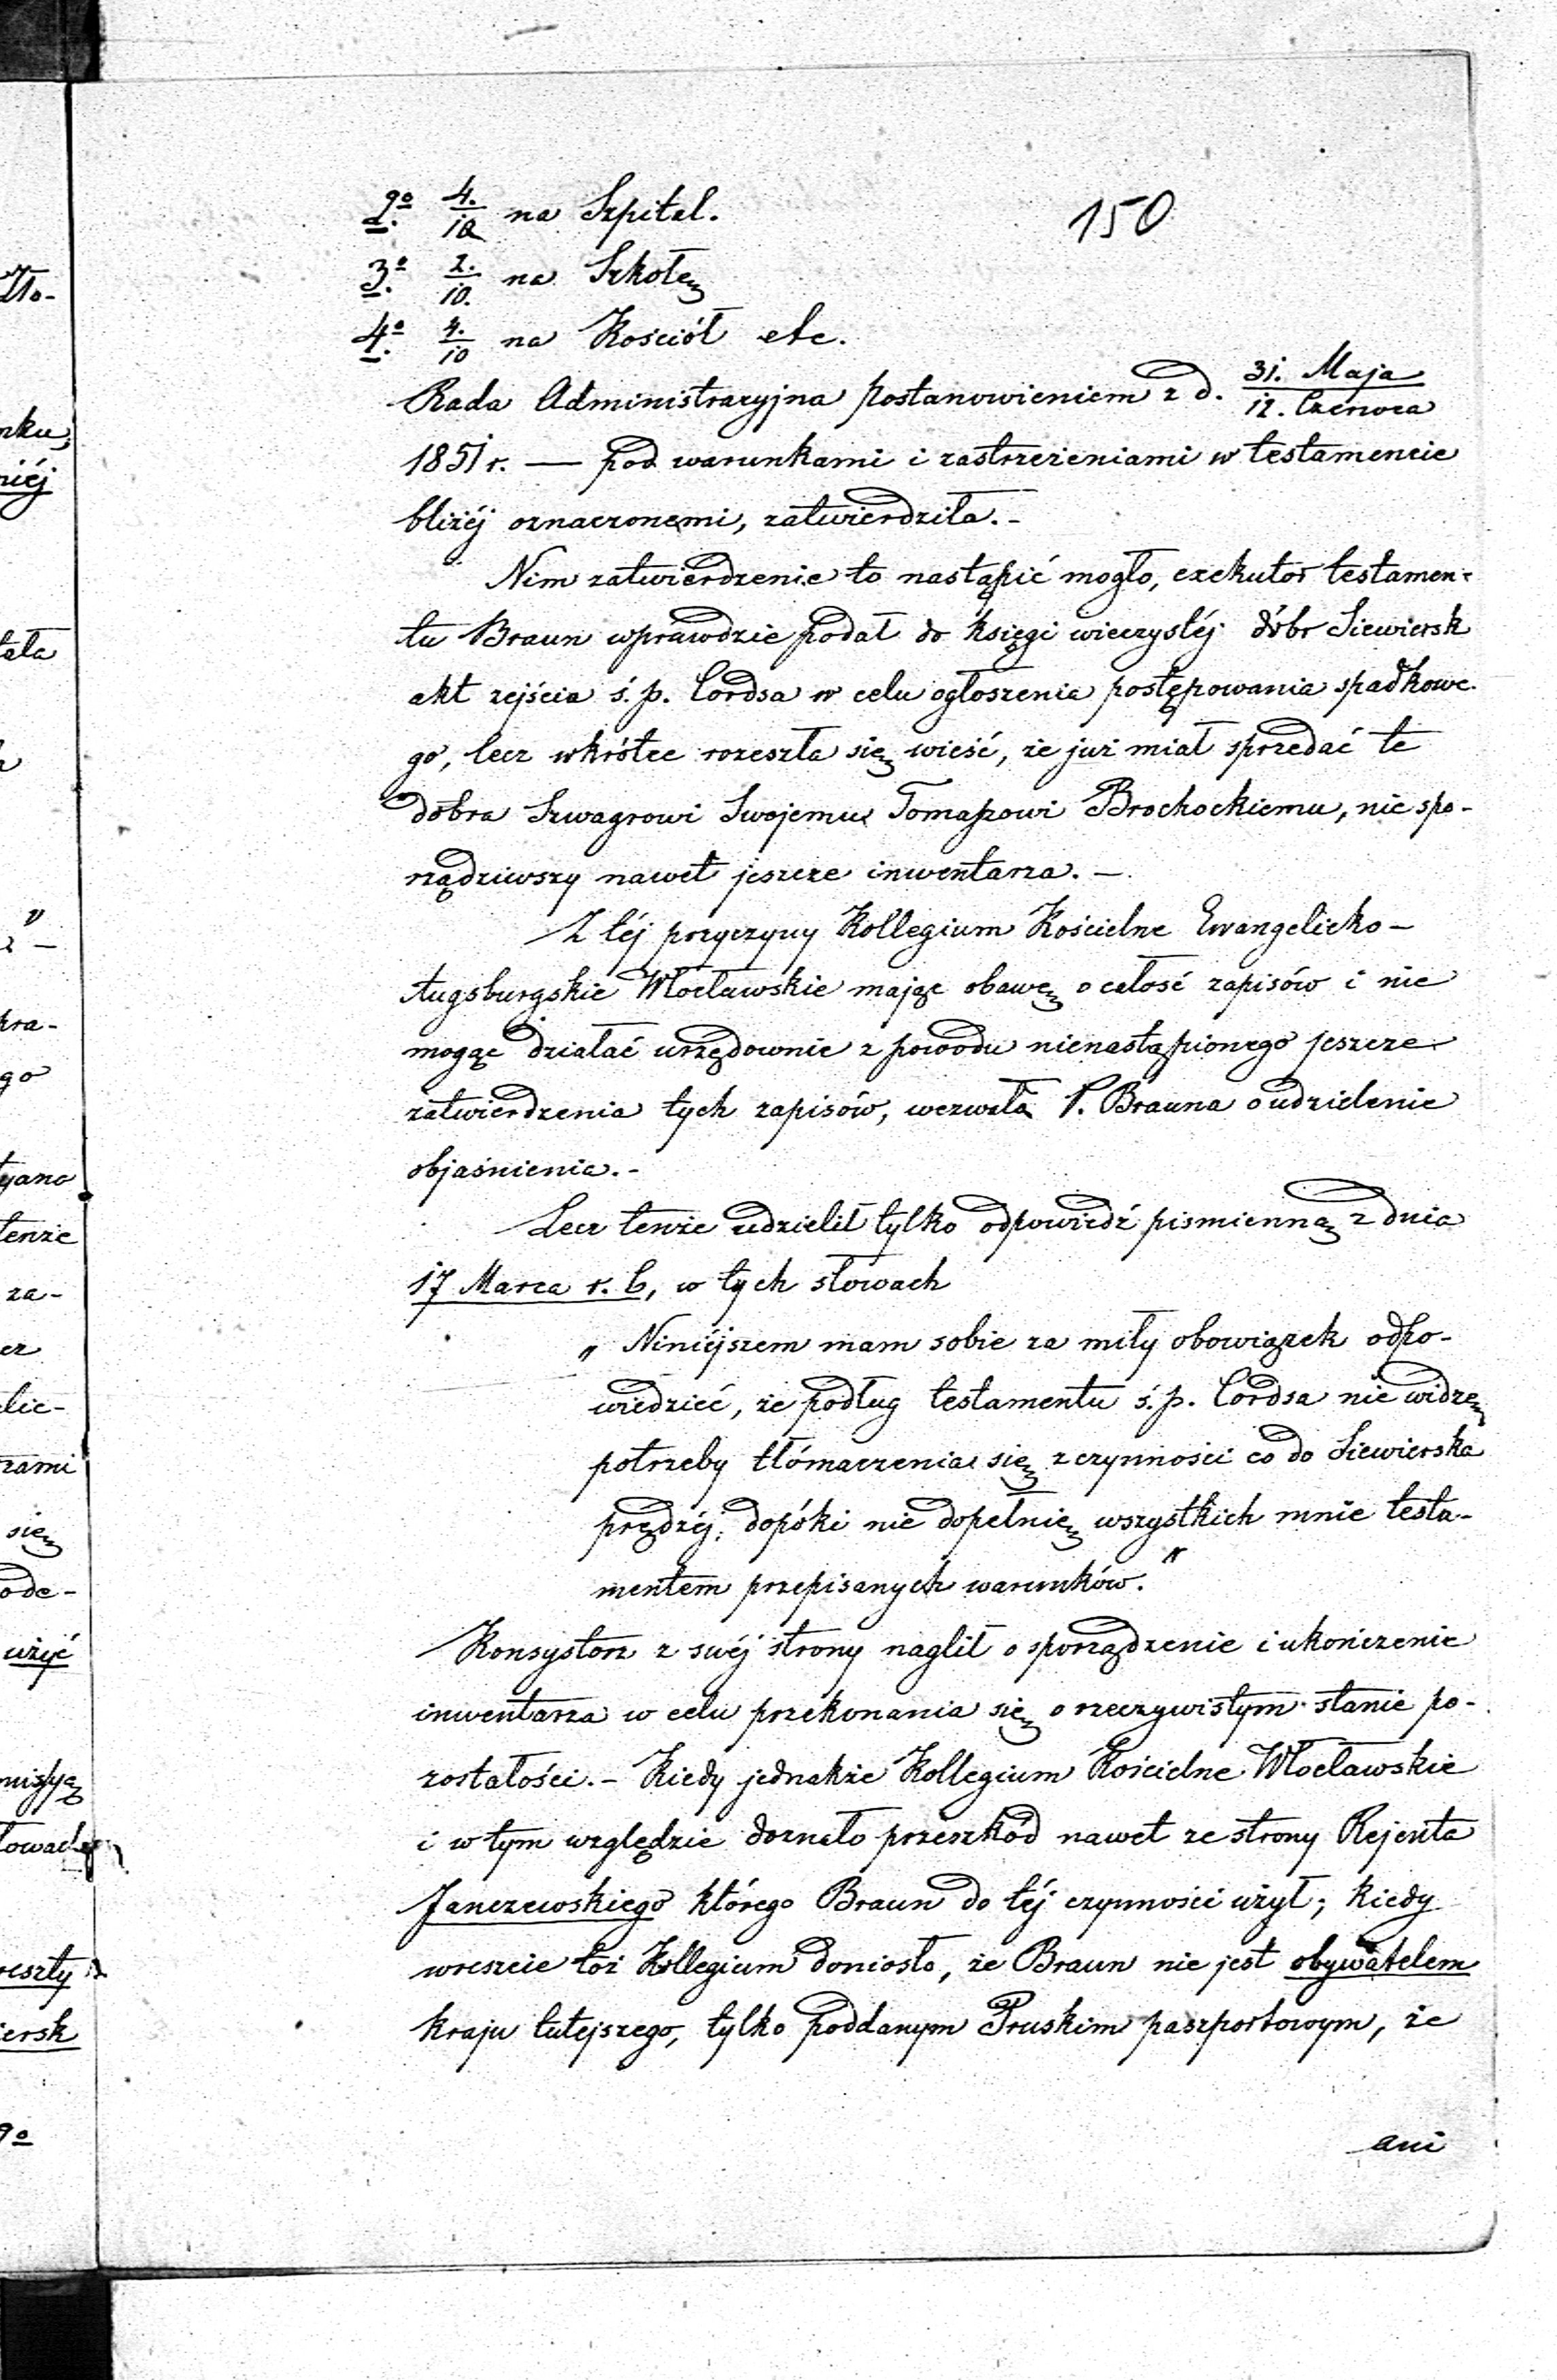 150
2º. 4./10 na Szpital.
3º. 2./10. na Szkołę
4º. 4./10 na Kościół etc.
Rada Administracyjna postanowieniem z d. 31. Maja/12. Czerwca
1851 r. — pod warunkami i zastrzeżeniami w testamencie
bliżéj oznaczonemi, zatwierdziła. -
Nim zatwierdzenie to nastąpić mogło, exekutor testamen-
tu Braun wprawdzie podał do księgi wieczystéj dóbr Siewiersk
akt zejścia ś. p. Cordsa w celu ogłoszenia postępowania spadkowe-
go, lecz wkrótce rozeszła się wieść, że już miał sprzedać te
dobra Szwagrowi Swojemu Tomaszowi Brochockiemu, nie spo-
rządziwszy nawet jeszcze inwentarza. —
Z téj przyczyny Kollegium Kościelne Ewangelicko-
Augsburgskie Włocławskie mając obawę o całość zapisów i nie
mogąc działać urzędownie z powodu nienastąpionego jeszcze
zatwierdzenia tych zapisów, wezwała P. Brauna o udzielenie
objaśnienia. -
Lecz tenże udzielił tylko odpowiedź pismienną z dnia
17 Marca r. b, w tych słowach
„ Niniéjszem mam sobie za miły obowiązek odpo-
wiedzieć, że podług testamentu ś. p. Cordsa nie widzę
potrzeby tłómaczenia się z czynności co do Siewierska
prędzéj, dopóki nie dopełnię wszystkich mnie testa-
mentem przepisanych warunków."
Konsystorz z swéj strony naglił o sporządzenie i ukończenie
inwentarza w celu przekonania się o rzeczywistym stanie po-
zostałości. - Kiedy jednakże Kollegium Kościelne Włocławskie
i w tym względzie doznało przeszkód nawet ze strony Rejenta
Janczewskiego którego Braun do téj czynności użył; kiedy
wreszcie toż Kollegium doniosło, że Braun nie jest obywatelem
kraju tutejszego, tylko poddanym Pruskim paszportowym, że
ani